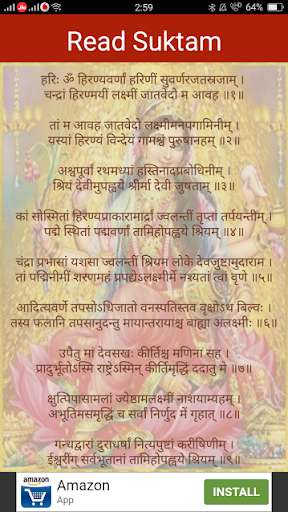 2:59
54%
Read Suktam
हरिः ॐ हिरण्यवर्णां हरिणीं सुवर्णरजतस्रजाम् ।
चन्द्रां हिरण्मयीं लक्ष्मीं जातवेदो म आवह ॥१॥
तां म आवह जातवेदो लक्ष्मीमनपगामिनीम् ।
यस्यां हिरण्यं विन्देयं गामश्वं पुरुषानहम् ॥२॥
अश्वपूर्वां रथमध्यां हस्तिनादप्रबोधिनीम् ।
श्रियं देवीमुपह्वये श्रीर्मा देवी जुषताम् ॥३॥
कां सोस्मितां हिरण्यप्राकारामार्द्रां ज्वलन्तीं तृप्तां तर्पयन्तीम् ।
पद्मे स्थितां पद्मवर्णां तामिहोपह्वये श्रियम् ॥४॥
चंद्रा प्रभासां यशसा ज्वलन्तीं श्रियम लोके देवजुष्टामुदाराम ।
तां पद्मिनीमीं शरणमहं प्रपद्येऽलक्ष्मीर्मे नश्यतां त्वां वृणे ॥५॥
आदित्यवर्णे तपसोऽधिजातो वनस्पतिस्तव वृक्षोऽथ बिल्वः ।
तस्य फलानि तपसानुदन्तु मायान्तरायाश्च बाह्या अलक्ष्मीः ॥६॥
उपैतु मां देवसखः कीर्तिश्च मणिना सह ।
प्रादुर्भूतोऽस्मि राष्ट्रेऽस्मिन् कीर्तिमृद्धिं ददातु मे ॥७॥
क्षुत्पिपासामलां ज्येष्ठामलक्ष्मीं नाशयाम्यहम् ।
अभूतिमसमृद्धिं च सर्वां निर्णुद मे गृहात् ॥८॥
गन्धद्वारां दुराधर्षां नित्यपुष्टां करीषिणीम् ।
ईश्वरींग् सर्वभूतानां तामिहोपह्वये श्रियम् ॥९॥
amazon
Amazon
App
INSTALL